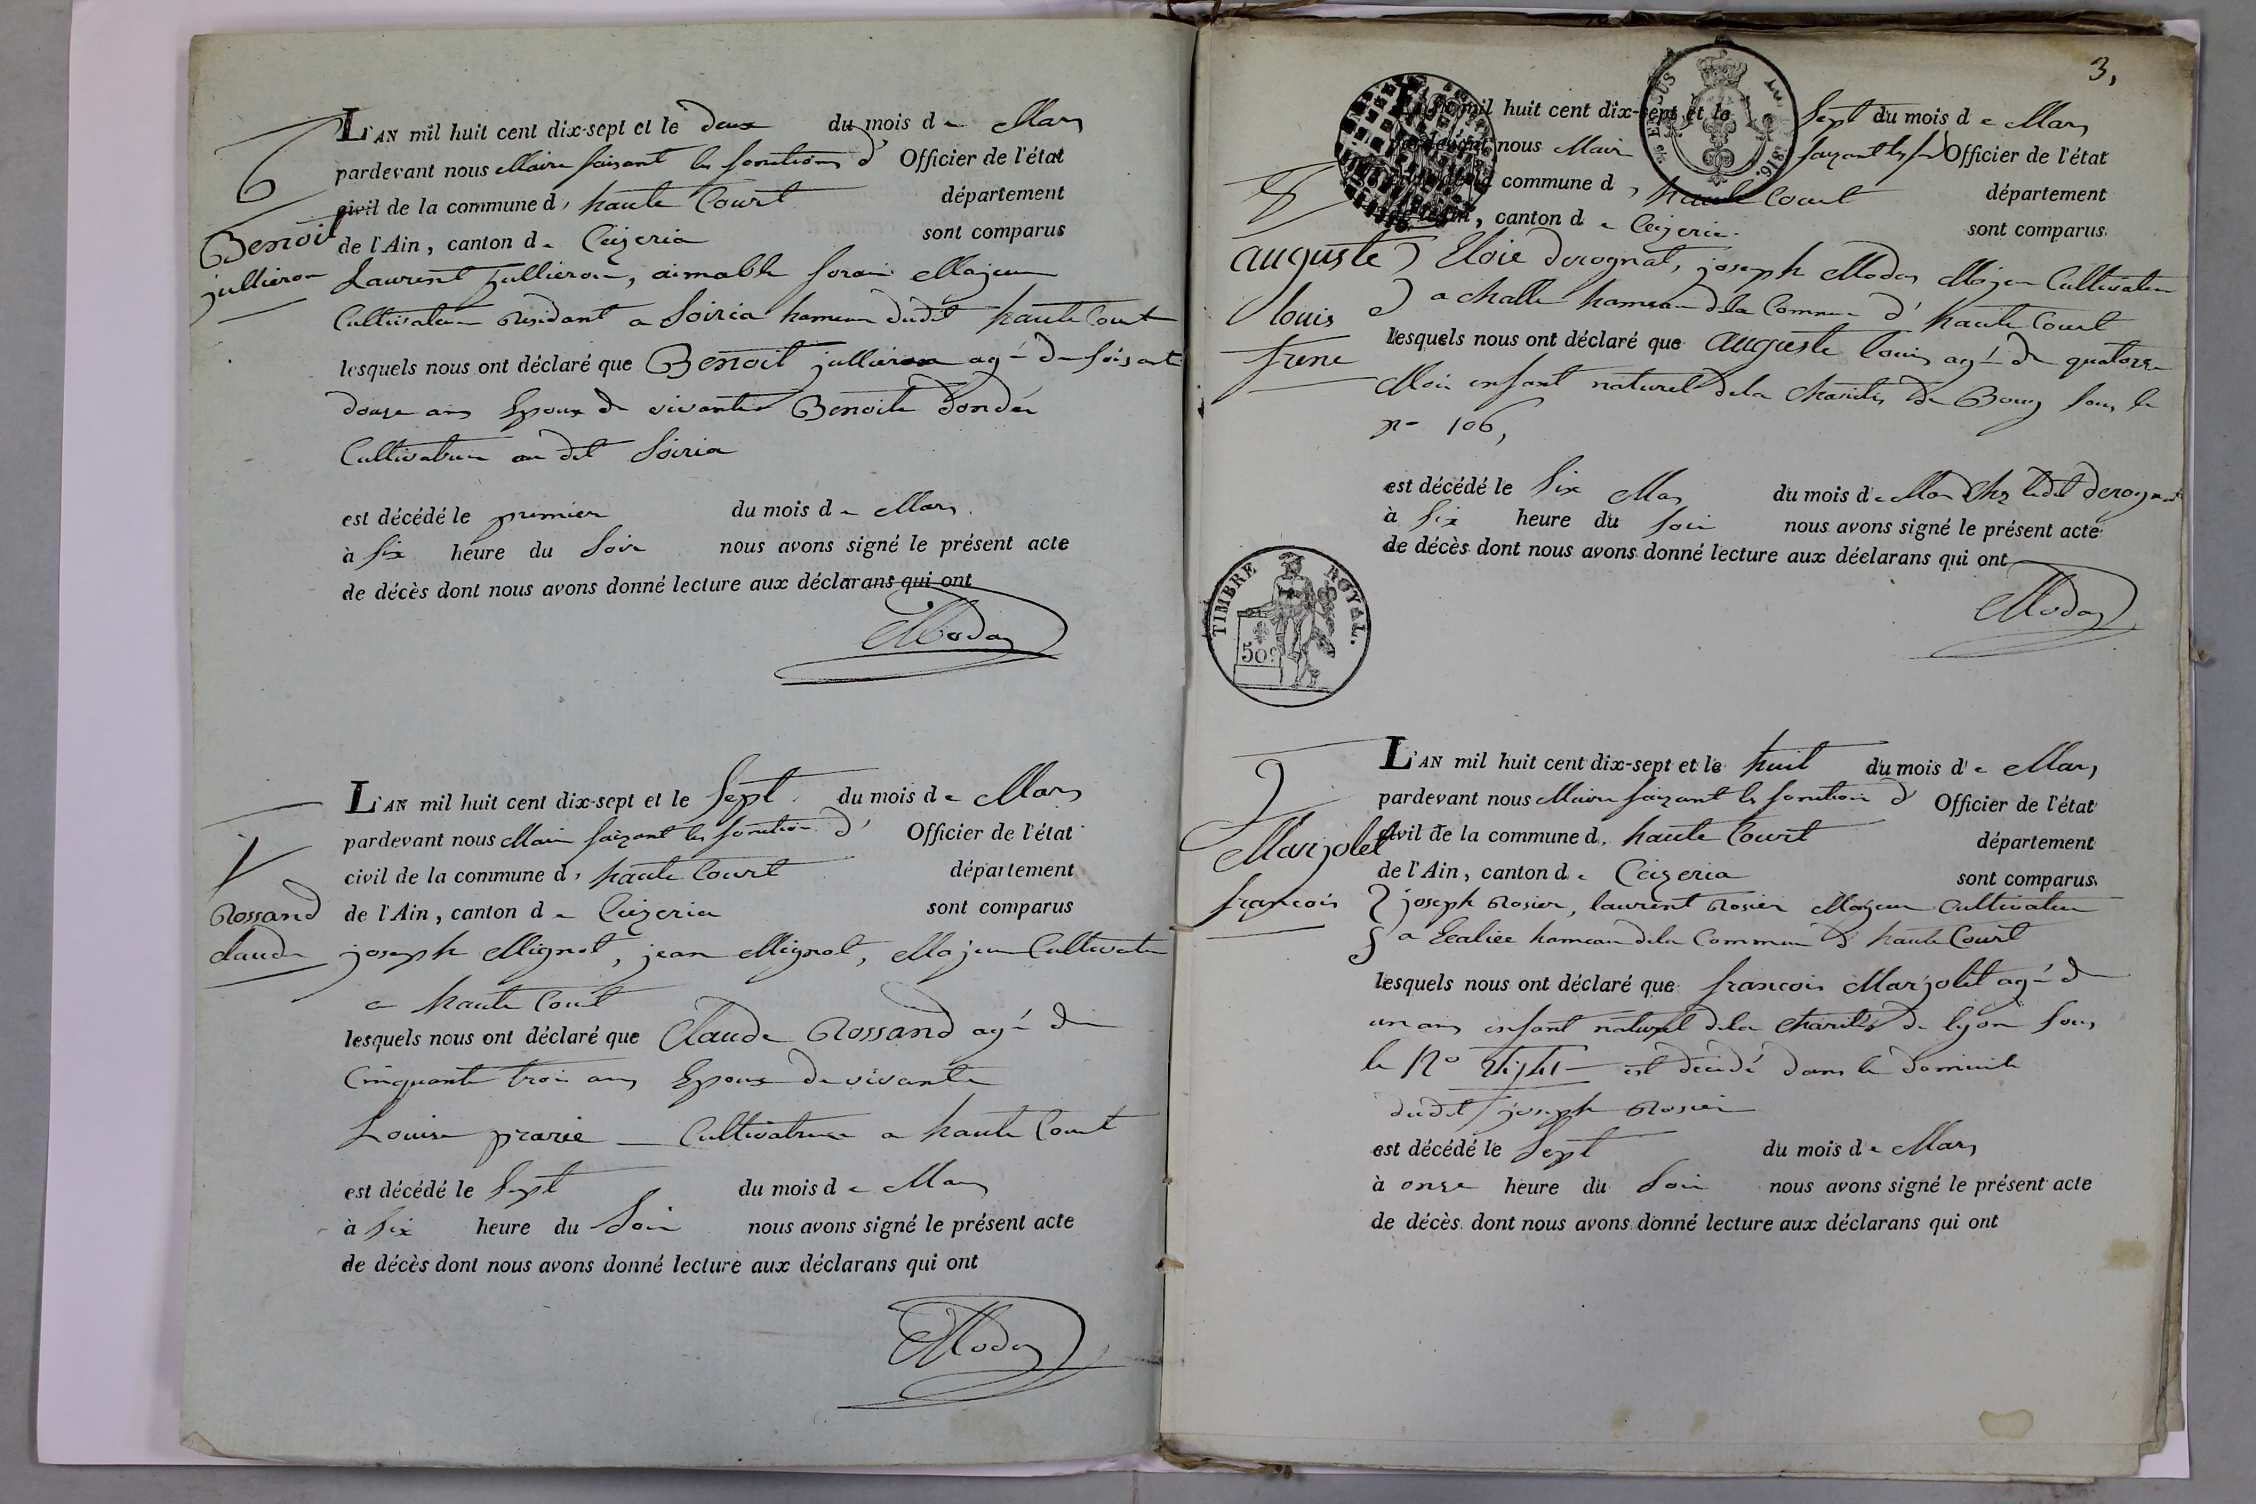 6
Benoit
jullieron
L'AN mil huit cent dix-sept et le deux du mois de Mars
pardevant nous Maire faisant les fonctions d' Officier de l'état
civil de la commune d, haute Court département
de l'Ain, canton de Ceizeria sont comparus
Laurent jullieron, aimable forain Majeurs
Cultivateurs Residant a Soiria hameau dudit haute Court
lesquels nous ont déclaré que Benoit jullieron agé de soisante
douze ans Epoux de vivante Benoite dondée
Cultivatrice au dit Soiria
est décédé le premier du mois de Mars
à six heure du Soir nous avons signé le présent acte
de décès dont nous avons donné lecture aux déclarans qui ont
Modas
7
Rossand
claude
L'AN mil huit cent dix-sept et le Sept du mois de Mars
pardevant nous Maire faizant les fonction d' Officier de l'état
civil de la commune d, haute Court département
de l'Ain, canton de Ceizeria sont comparus
joseph Mignot, jean Mignot, Majeurs Cultivateurs
a haute Court
lesquels nous ont déclaré que Claude Rossand agé de
Cinquante trois ans Epoux de vivante
Louise prarie Cultivatrice a haute Court
est décédé le Sept du mois de Mars
à six heure du Soir nous avons signé le présent acte
de décès dont nous avons donné lecture aux déclarans qui ont
Modas
3,
8
auguste
louis
frene
L'AN mil huit cent dix-sept et le Sept du mois de Mars
pardevant nous Maire faizant les Officier de l'état
commune d, haute Court département
de l'Ain, canton de Ceizeria sont comparus
Eloie derognat, joseph Modas Majeurs Cultivateurs
a challe hameau de la Commune d' haute Court
lesquels nous ont déclaré que auguste louis agé de quatorze
Mois enfant naturel de la charité de Bourg sous le
no 106,
est décédé le Six Mars du mois de Mars chez ledit derognat
à Six heure du soir nous avons signé le présent acte
de décès dont nous avons donné lecture aux déclarans qui ont
Modas
TIMBRE ROYAL.
50c
1816.
9
Marjolet
françois
L'AN mil huit cent dix-sept et le huit du mois de Mars
pardevant nous Maire faizant les fonction d' Officier de l'état
civil de la commune d, haute Court département
de l'Ain, canton de Ceizeria sont comparus
joseph Rosier, laurent Rosier Majeurs Cultivateurs
a hameau de la Commune d' haute Court
lesquels nous ont déclaré que francois Marjolet agé de
un ans enfant naturel de la charité de lyon sous
le No est décédé dans le domicile
dudit joseph Rosier
est décédé le Sept du mois de Mars
à onze heure du Soir nous avons signé le présent acte
de décès dont nous avons donné lecture aux déclarans qui ont